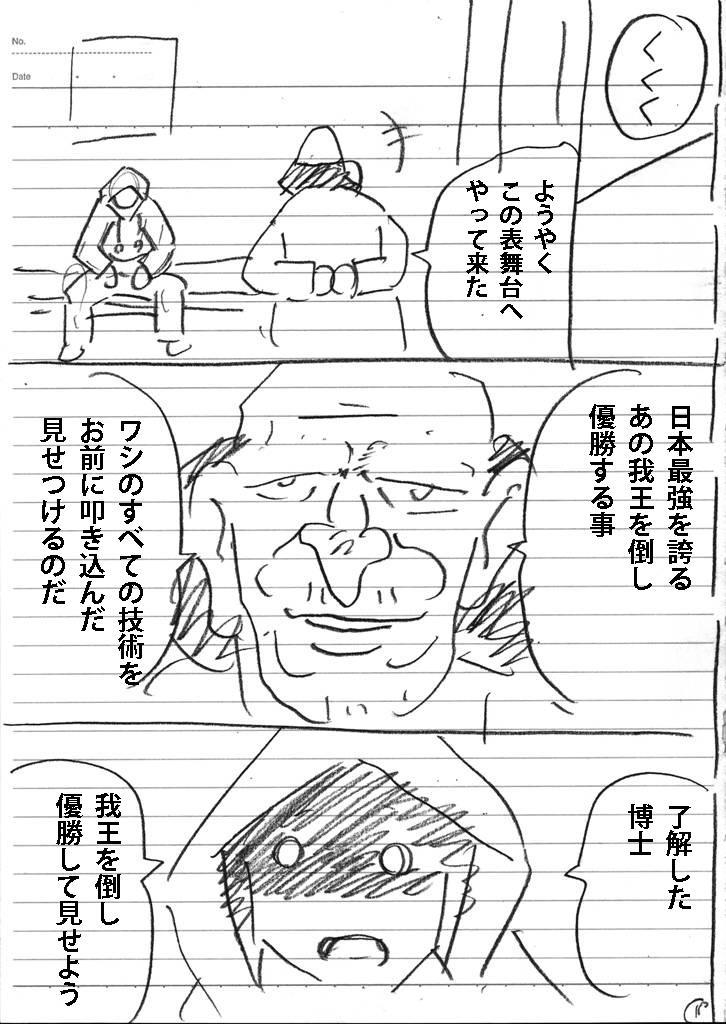 No.
Date
くくく
ようやく
この表舞台へ
やって来た
日本最強を誇る
あの我王を倒し
優勝する事
ワシのすべての技術を
お前に叩き込んだ
見せつけるのだ
了解した
博士
我王を倒し
優勝して見せよう